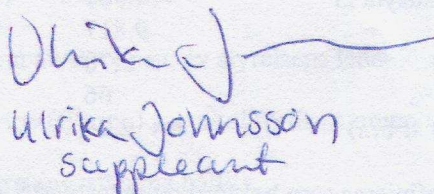 Ulrika J
Ulrika Johnsson
suppleant